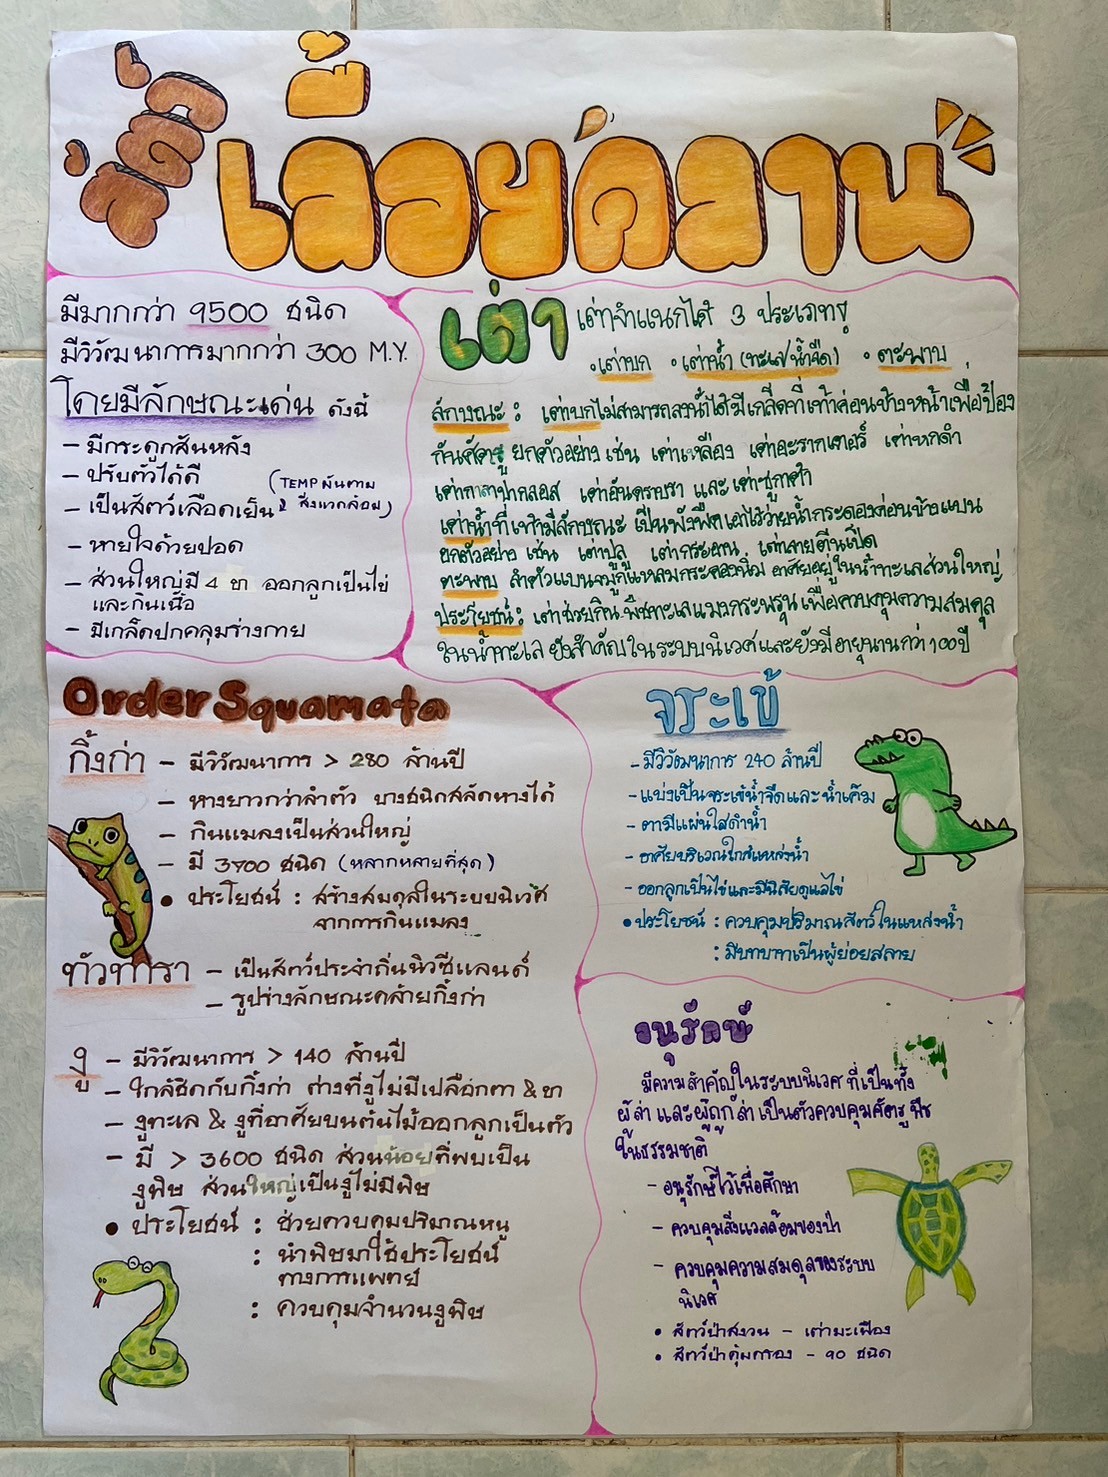 สัตว์
เลื้อยคลาน
มีมากกว่า 9500 ชนิด
มีวิวัฒนาการมากกว่า 300 M.Y.
โดยมีลักษณะเด่น ดังนี้
- มีกระดูกสันหลัง
- ปรับตัวได้ดี
- เป็นสัตว์เลือดเย็น (TEMP ผันตาม
สิ่งแวดล้อม)
- หายใจด้วยปอด
- ส่วนใหญ่มี 4 ขา ออกลูกเป็นไข่
และกินเนื้อ
- มีเกล็ดปกคลุมร่างกาย
เต่า เต่าจำแนกได้ 3 ประเภท
• เต่าบก • เต่าน้ำ (ทะเล/น้ำจืด) • ตะพาบ
ลักษณะ : เต่าบกไม่สามารถลงน้ำได้ มีเกล็ดที่เท้าค่อนข้างหน้าเพื่อป้อง
กันศัตรู ยกตัวอย่าง เช่น เต่าเหลือง เต่าอะราคเตอร์ เต่าหกดำ
เต่ากาลาปากอส เต่าอัลดราบรา และเต่าซูคาต้า
เต่าน้ำที่เท้ามีลักษณะ เป็นพังผืดเอาไว้ว่ายน้ำกระดองค่อนข้างแบน
ยกตัวอย่าง เช่น เต่าปูลู เต่ากระอาน เต่าลายตีนเป็ด
ตะพาบ ลำตัวแบนจมูกแหลมกระดองนิ่ม อาศัยอยู่ในน้ำทะเลส่วนใหญ่
ประโยชน์ : เต่าช่วยกินพืชทะเลแมงกระพรุนเพื่อควบคุมความสมดุล
ในน้ำทะเล ยังสำคัญในระบบนิเวศและยังมีอายุนานกว่า 100 ปี
Order Squamata
กิ้งก่า - มีวิวัฒนาการ > 280 ล้านปี
- หางยาวกว่าลำตัว บางชนิดสลัดหางได้
- กินแมลงเป็นส่วนใหญ่
- มี 3900 ชนิด (หลากหลายที่สุด)
• ประโยชน์ : สร้างสมดุลในระบบนิเวศ
จากการกินแมลง
ทัวทารา - เป็นสัตว์ประจำถิ่นนิวซีแลนด์
- รูปร่างลักษณะคล้ายกิ้งก่า
งู - มีวิวัฒนาการ > 140 ล้านปี
- ใกล้ชิดกับกิ้งก่า ต่างที่งูไม่มีเปลือกตา & ขา
- งูทะเล & งูที่อาศัยบนต้นไม้ออกลูกเป็นตัว
- มี > 3600 ชนิด ส่วนน้อยที่พบเป็น
งูพิษ ส่วนใหญ่เป็นงูไม่มีพิษ
• ประโยชน์ : ช่วยควบคุมปริมาณหนู
: นำพิษมาใช้ประโยชน์
ทางการแพทย์
: ควบคุมจำนวนงูพิษ
จระเข้
- มีวิวัฒนาการ 240 ล้านปี
- แบ่งเป็นจระเข้น้ำจืดและน้ำเค็ม
- ตามีแผ่นใสดำน้ำ
- อาศัยบริเวณใกล้แหล่งน้ำ
- ออกลูกเป็นไข่และมีนิสัยดูแลไข่
• ประโยชน์ : ควบคุมปริมาณสัตว์ในแหล่งน้ำ
: มีบทบาทเป็นผู้ย่อยสลาย
อนุรักษ์
มีความสำคัญในระบบนิเวศ ที่เป็นทั้ง
ผู้ล่า และผู้ถูกล่า เป็นตัวควบคุมศัตรูพืช
ในธรรมชาติ
- อนุรักษ์ไว้เพื่อศึกษา
- ควบคุมสิ่งแวดล้อมของป่า
- ควบคุมความสมดุลของระบบ
นิเวศ
• สัตว์ป่าสงวน - เต่ามะเฟือง
• สัตว์ป่าคุ้มครอง - 90 ชนิด